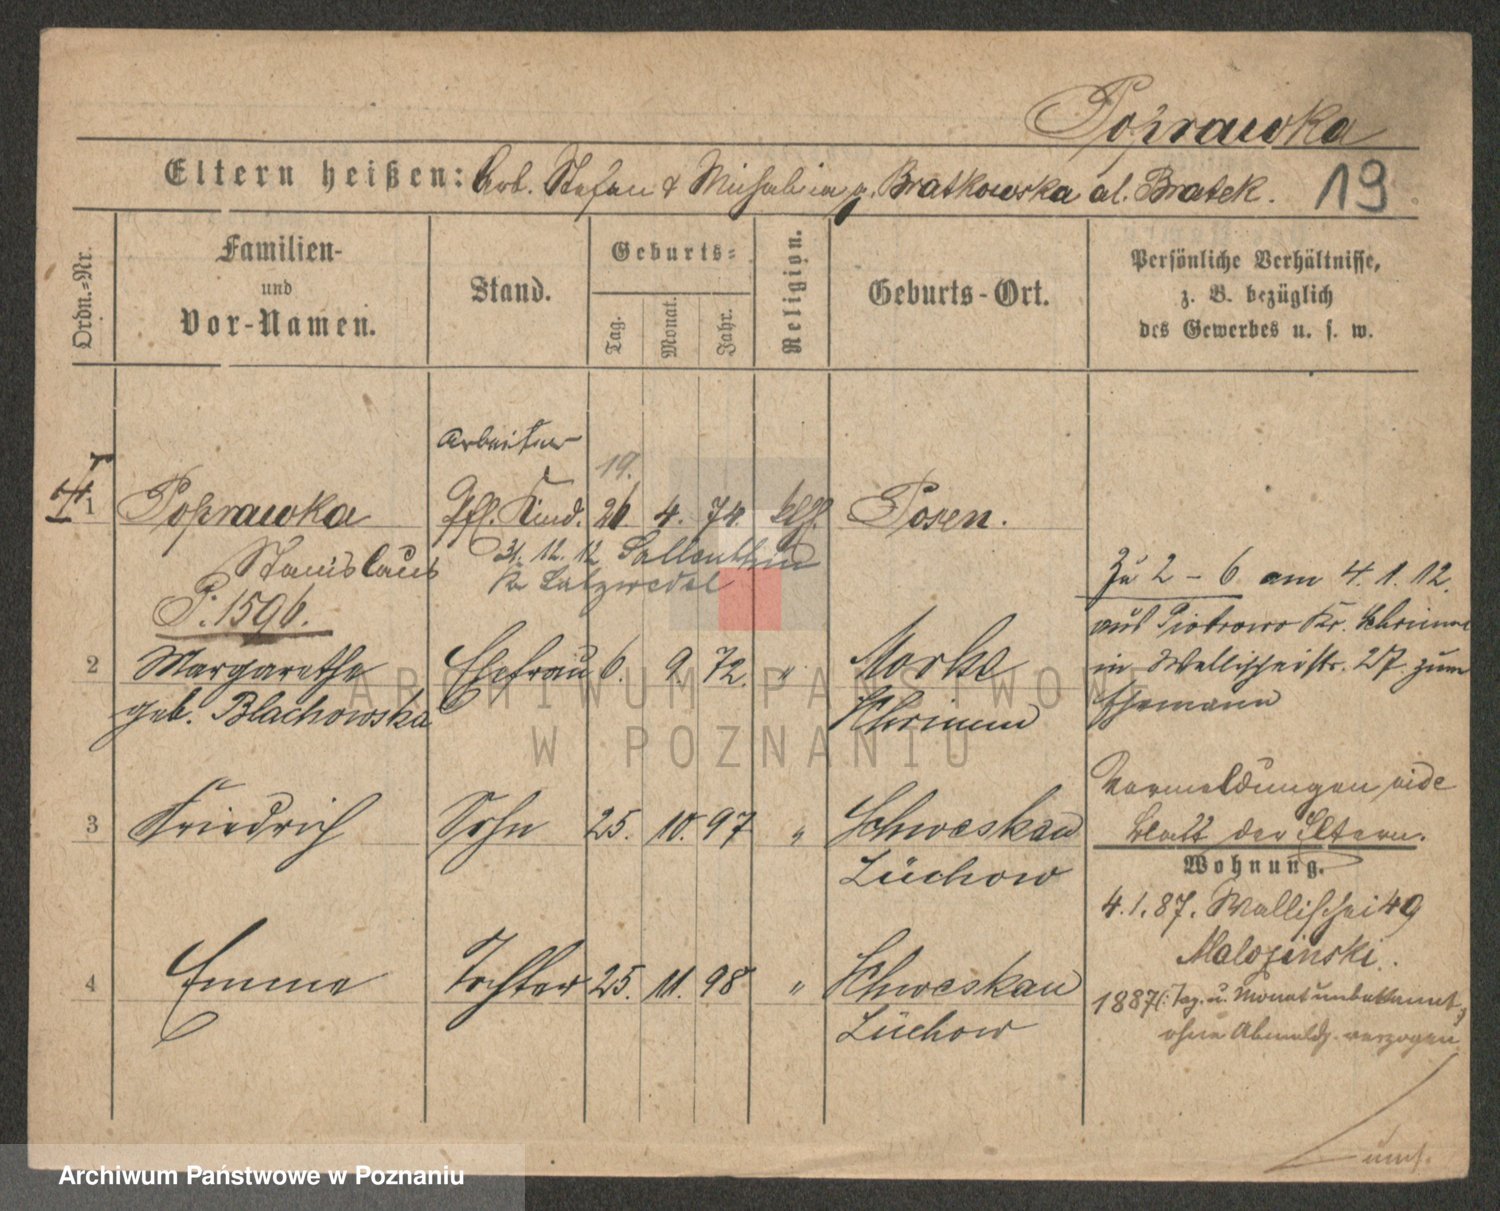 Poprawka
Eltern heißen: Arb. Stefan & Michalina g. Bratkowska al. Bratek. 19
Ordn.-Nr.
Familien-
und
Vor-Namen.
Stand.
Geburts-
Tag.
Monat.
Jahr.
Religion.
Geburts-Ort.
Persönliche Verhältnisse,
z. B. bezüglich
des Gewerbes u. s. w.
Arbeiter
19.
1 Poprawka Pfl. Kind. 26 4. 74. Posen.
Stanislaus 31. 12. 12 Sallenthin
Kr Salzwedel
P. 1596.
2 Margarethe Ehefrau 6. 9. 72. " Morke
geb. Blachowska Schrimm
Zu 2 - 6 am 4. 1. 12.
aus Piotrowo Kr. Schrimm
in Wallischeistr. 27. zum
Ehemann
3 Friedrich Sohn 25. 10. 97 " Schweskau
Lüchow
Vermeldungen vide
Blatt der Eltern.
Wohnung.
4. 1. 87. Wallischei 49
Malozinski.
4 Emma Tochter 25. 11. 98 " Schweskau
Lüchow
1887 Tag. u. Monat unbekannt,
ohne Abmeldg. verzogen
umf.
ARCHIWUM PAŃSTWOWE
W POZNANIU
Archiwum Państwowe w Poznaniu